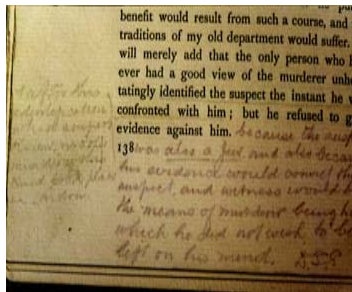 benefit would result from such a course, and
traditions of my old department would suffer.
will merely add that the only person who
ever had a good view of the murderer unhe
tatingly identified the suspect the instant he
confronted with him; but he refused to g
evidence against him. because the susp
138 was also a Jew and also becau
his evidence would convict the
suspect, and witness would b
the means of murderer being h
which he did not wish to be
left on his mind. D.S.S.
after this
identification
suspect
knew, no other
murder of this
kind took place
in London